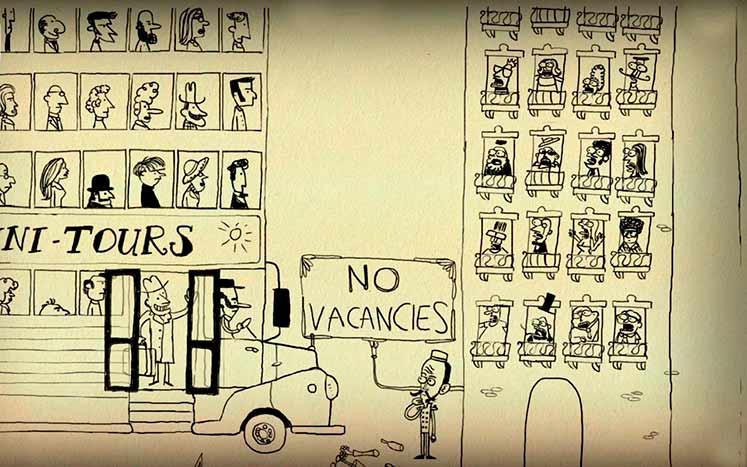 NI-TOURS
NO
VACANCIES